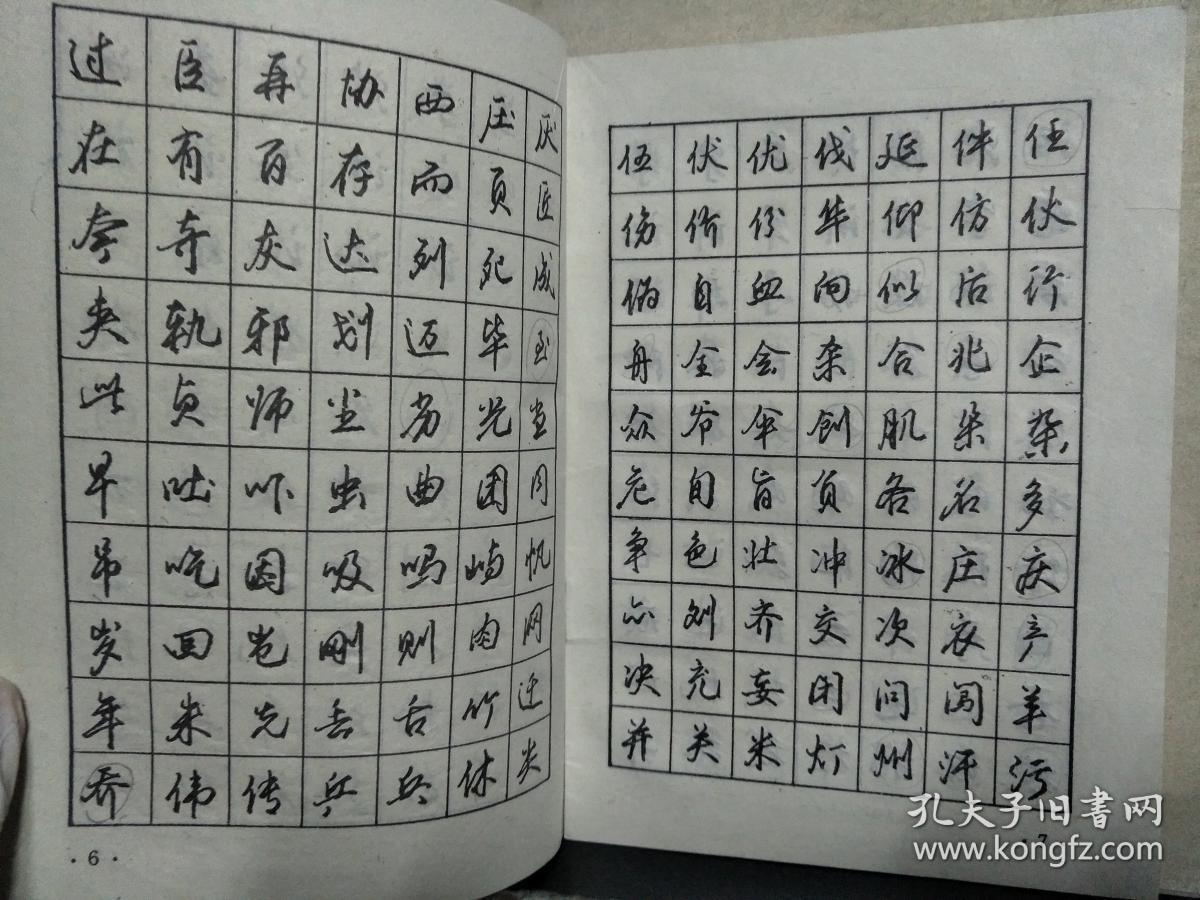 过臣再协西压厌
在有百存而页匠
夸夺灰达列死成
夹轨邪划迈毕至
此贞师尘劣光当
早吐吓虫曲团同
吊吃因吸吗屿帆
岁回岂刚则肉网
年朱先丢舌竹迁
乔伟传乒乓休类
·6·
伍伏优伐延件任
伤价份华仰仿伙
伪自血向似后行
舟全会杀合兆企
众爷伞创肌朵杂
危旬旨负各名多
争色壮冲冰庄庆
亦刘齐交次衣产
决充妄闭问闯羊
并关米灯州汗污
·7
孔夫子旧書网
www.kongfz.com